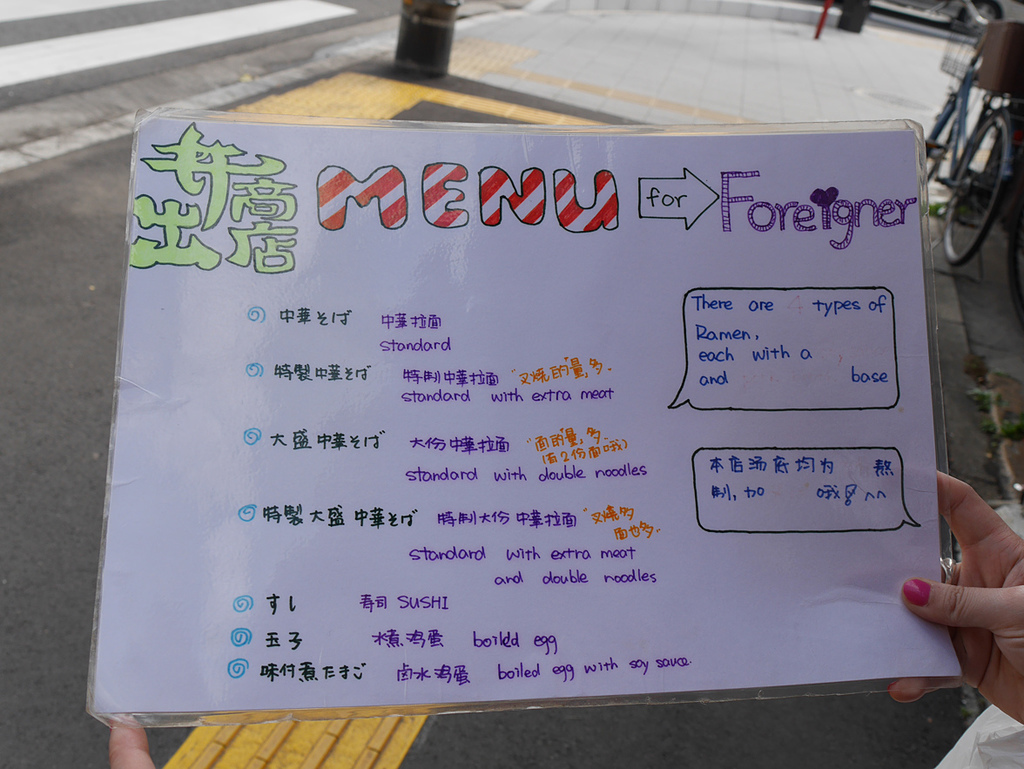 井出
商店
MENU for Foreigner
中華そば 中華拉面
standard
特製中華そば 特制中華拉面 "叉燒的"量"多"
standard with extra meat
大盛中華そば 大份中華拉面 "面的"量"多
(有2份面哦)
standard with double noodles
特製大盛中華そば 特制大份中華拉面 "叉燒多
面也多"
standard with extra meat
and double noodles
すし 寿司 SUSHI
玉子 水煮鸡蛋 boiled egg
味付煮たまご 卤水鸡蛋 boiled egg with soy sauce.
There are 4 types of
Ramen,
each with a
and base
本店汤底均为 熬
制,加 哦 ^^